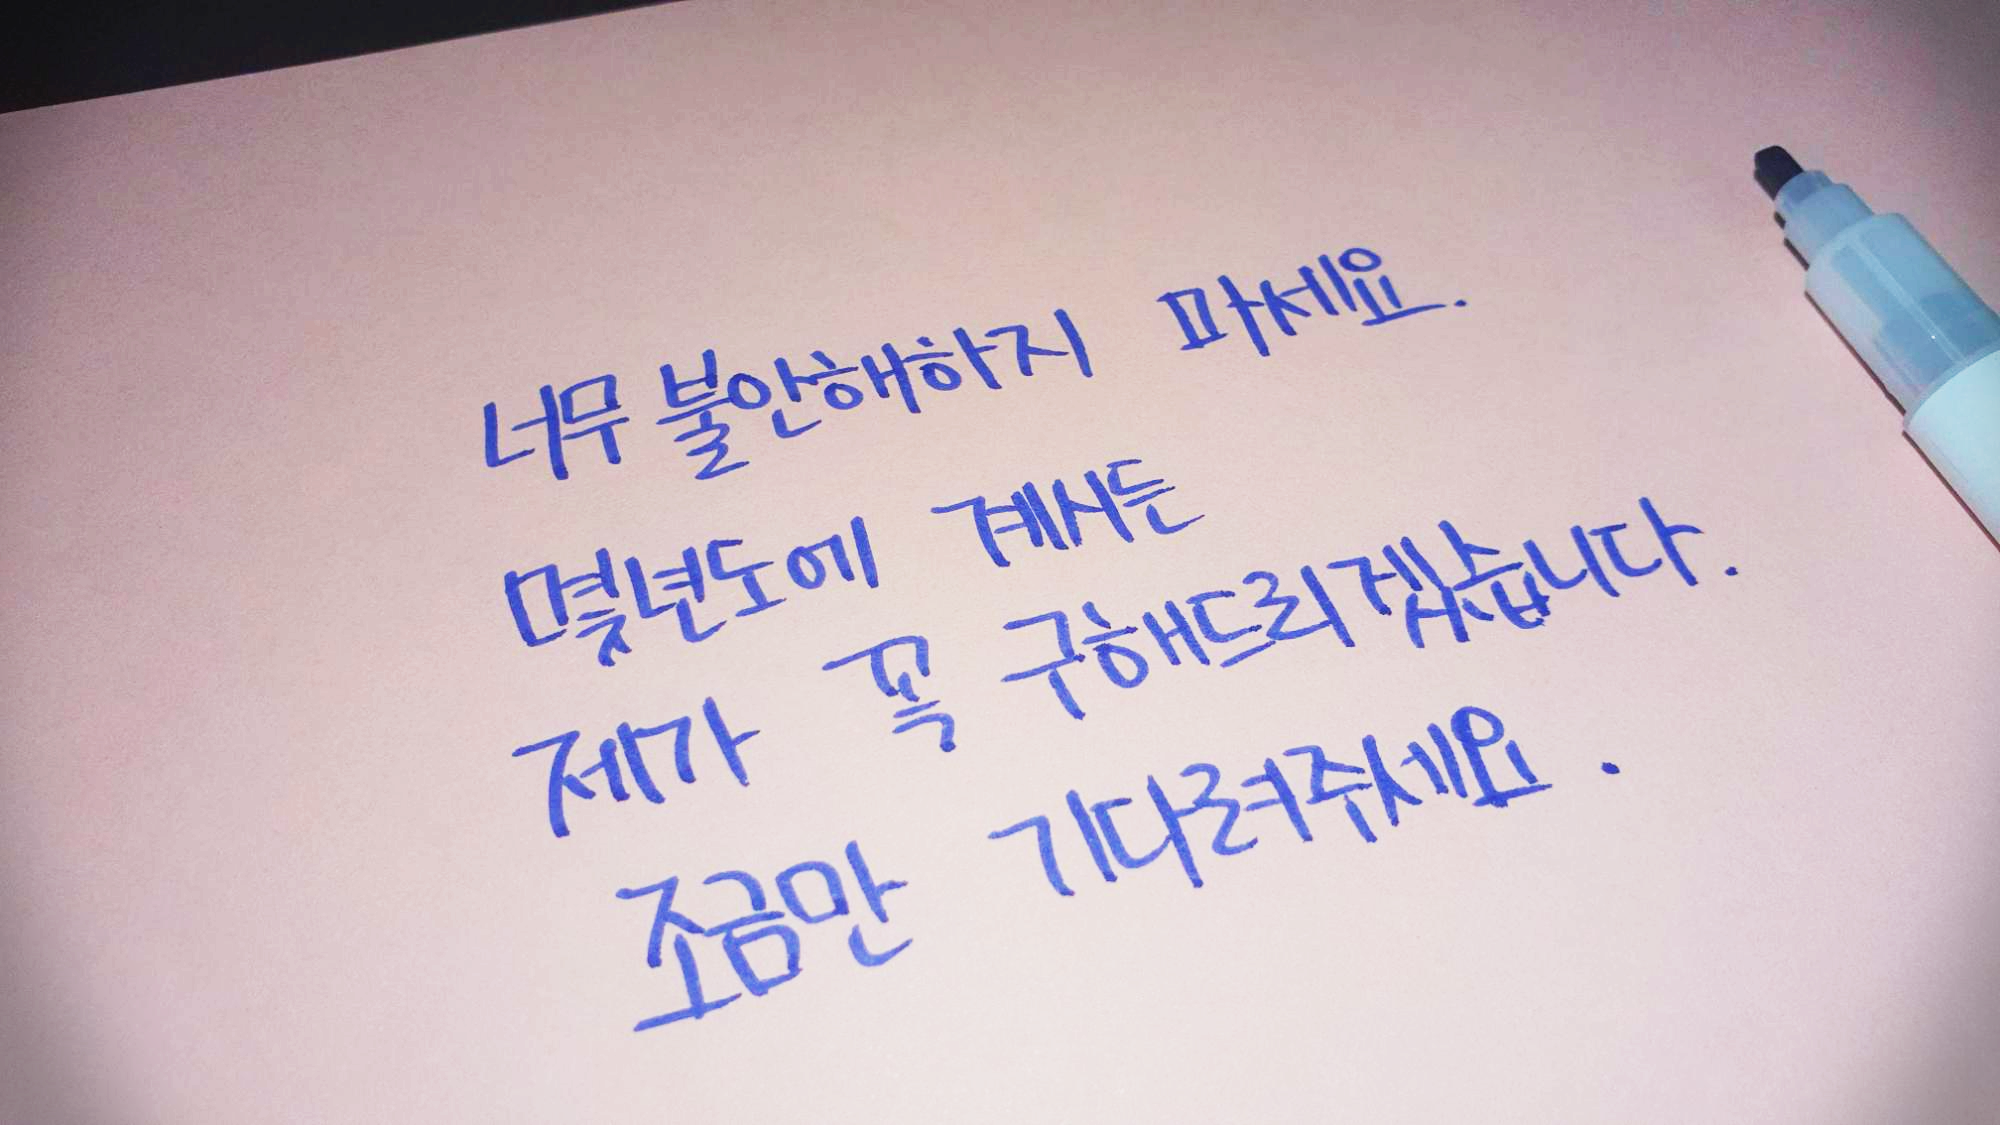 너무 불안해하지 마세요.
몇년도에 계시든
제가 꼭 구해드리겠습니다.
조금만 기다려주세요.